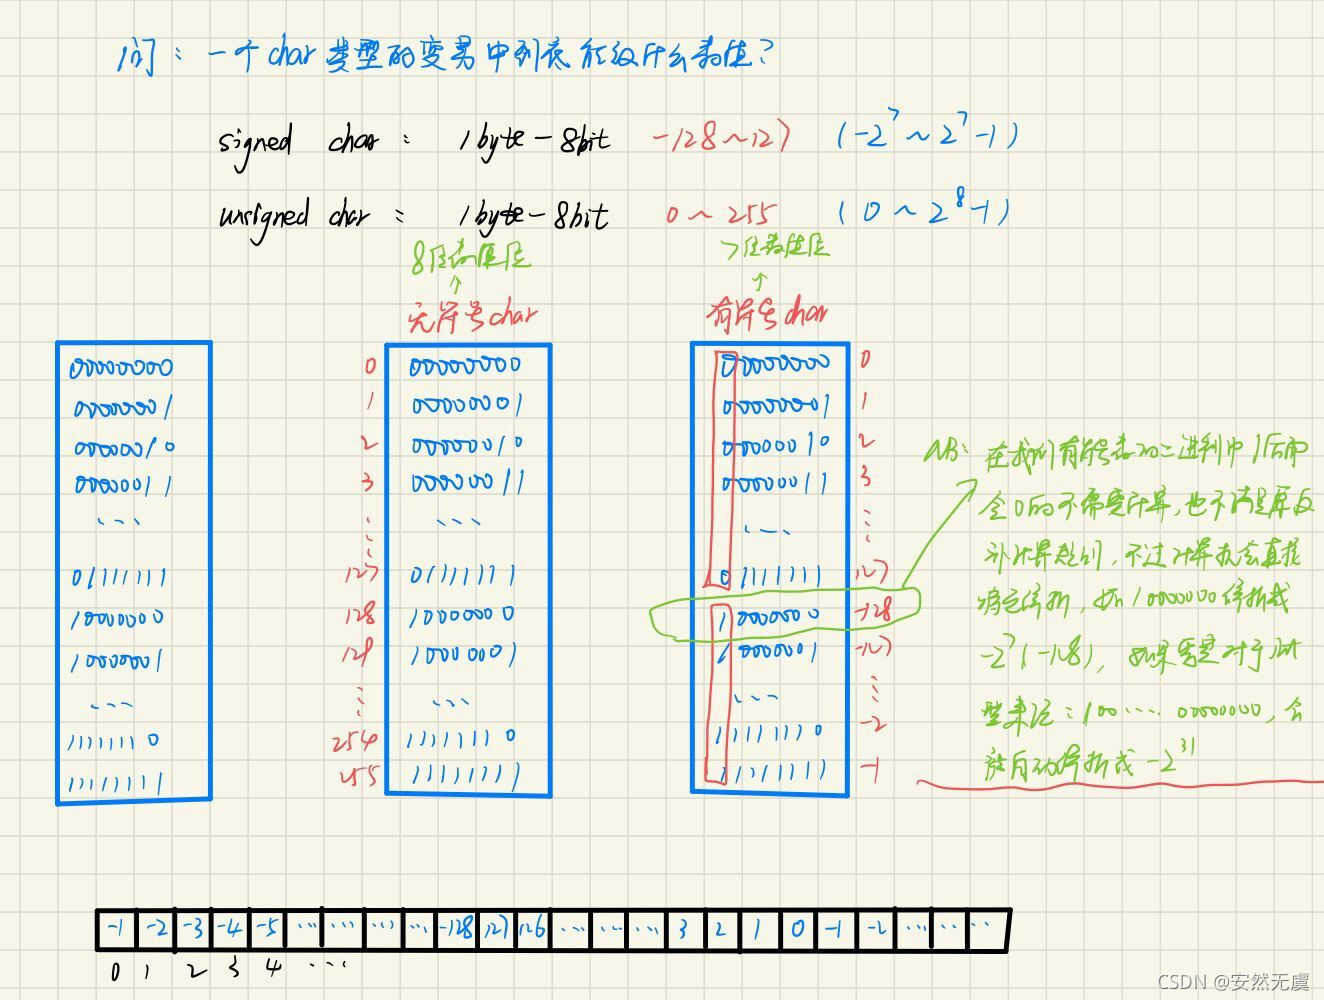 问：一个char类型的变量中到底能放什么数值？
signed char： 1byte-8bit -128~127 (-2^7 ~ 2^7-1)
unsigned char： 1byte-8bit 0~255 (0~2^8-1)
8位数值位 7位数值位
↑ ↑
无符号char 有符号char
00000000 0 00000000 00000000 0
00000001 1 00000001 00000001 1
00000010 2 00000010 00000010 2
00000011 3 00000011 00000011 3
... ⋮ ... ... ⋮
01111111 127 01111111 01111111 127
10000000 128 10000000 10000000 -128
10000001 129 10000001 10000001 -127
... ⋮ ... ... ⋮
11111110 254 11111110 11111110 -2
11111111 255 11111111 11111111 -1
NB：在我们有符号数的二进制中1后面
全0的不需要计算，也不满足原反
补计算规则，不过计算机会直接
将它解析，如10000000解析成
-2^7(-128)，如果需要对于int
型来说：100····00000000，会
被自动解析成-2^31
-1 -2 -3 -4 -5 ... ... ... ... -128 127 126 ... ... ... 3 2 1 0 -1 -2 ... ... ...
0 1 2 3 4 ...
CSDN @安然无虞